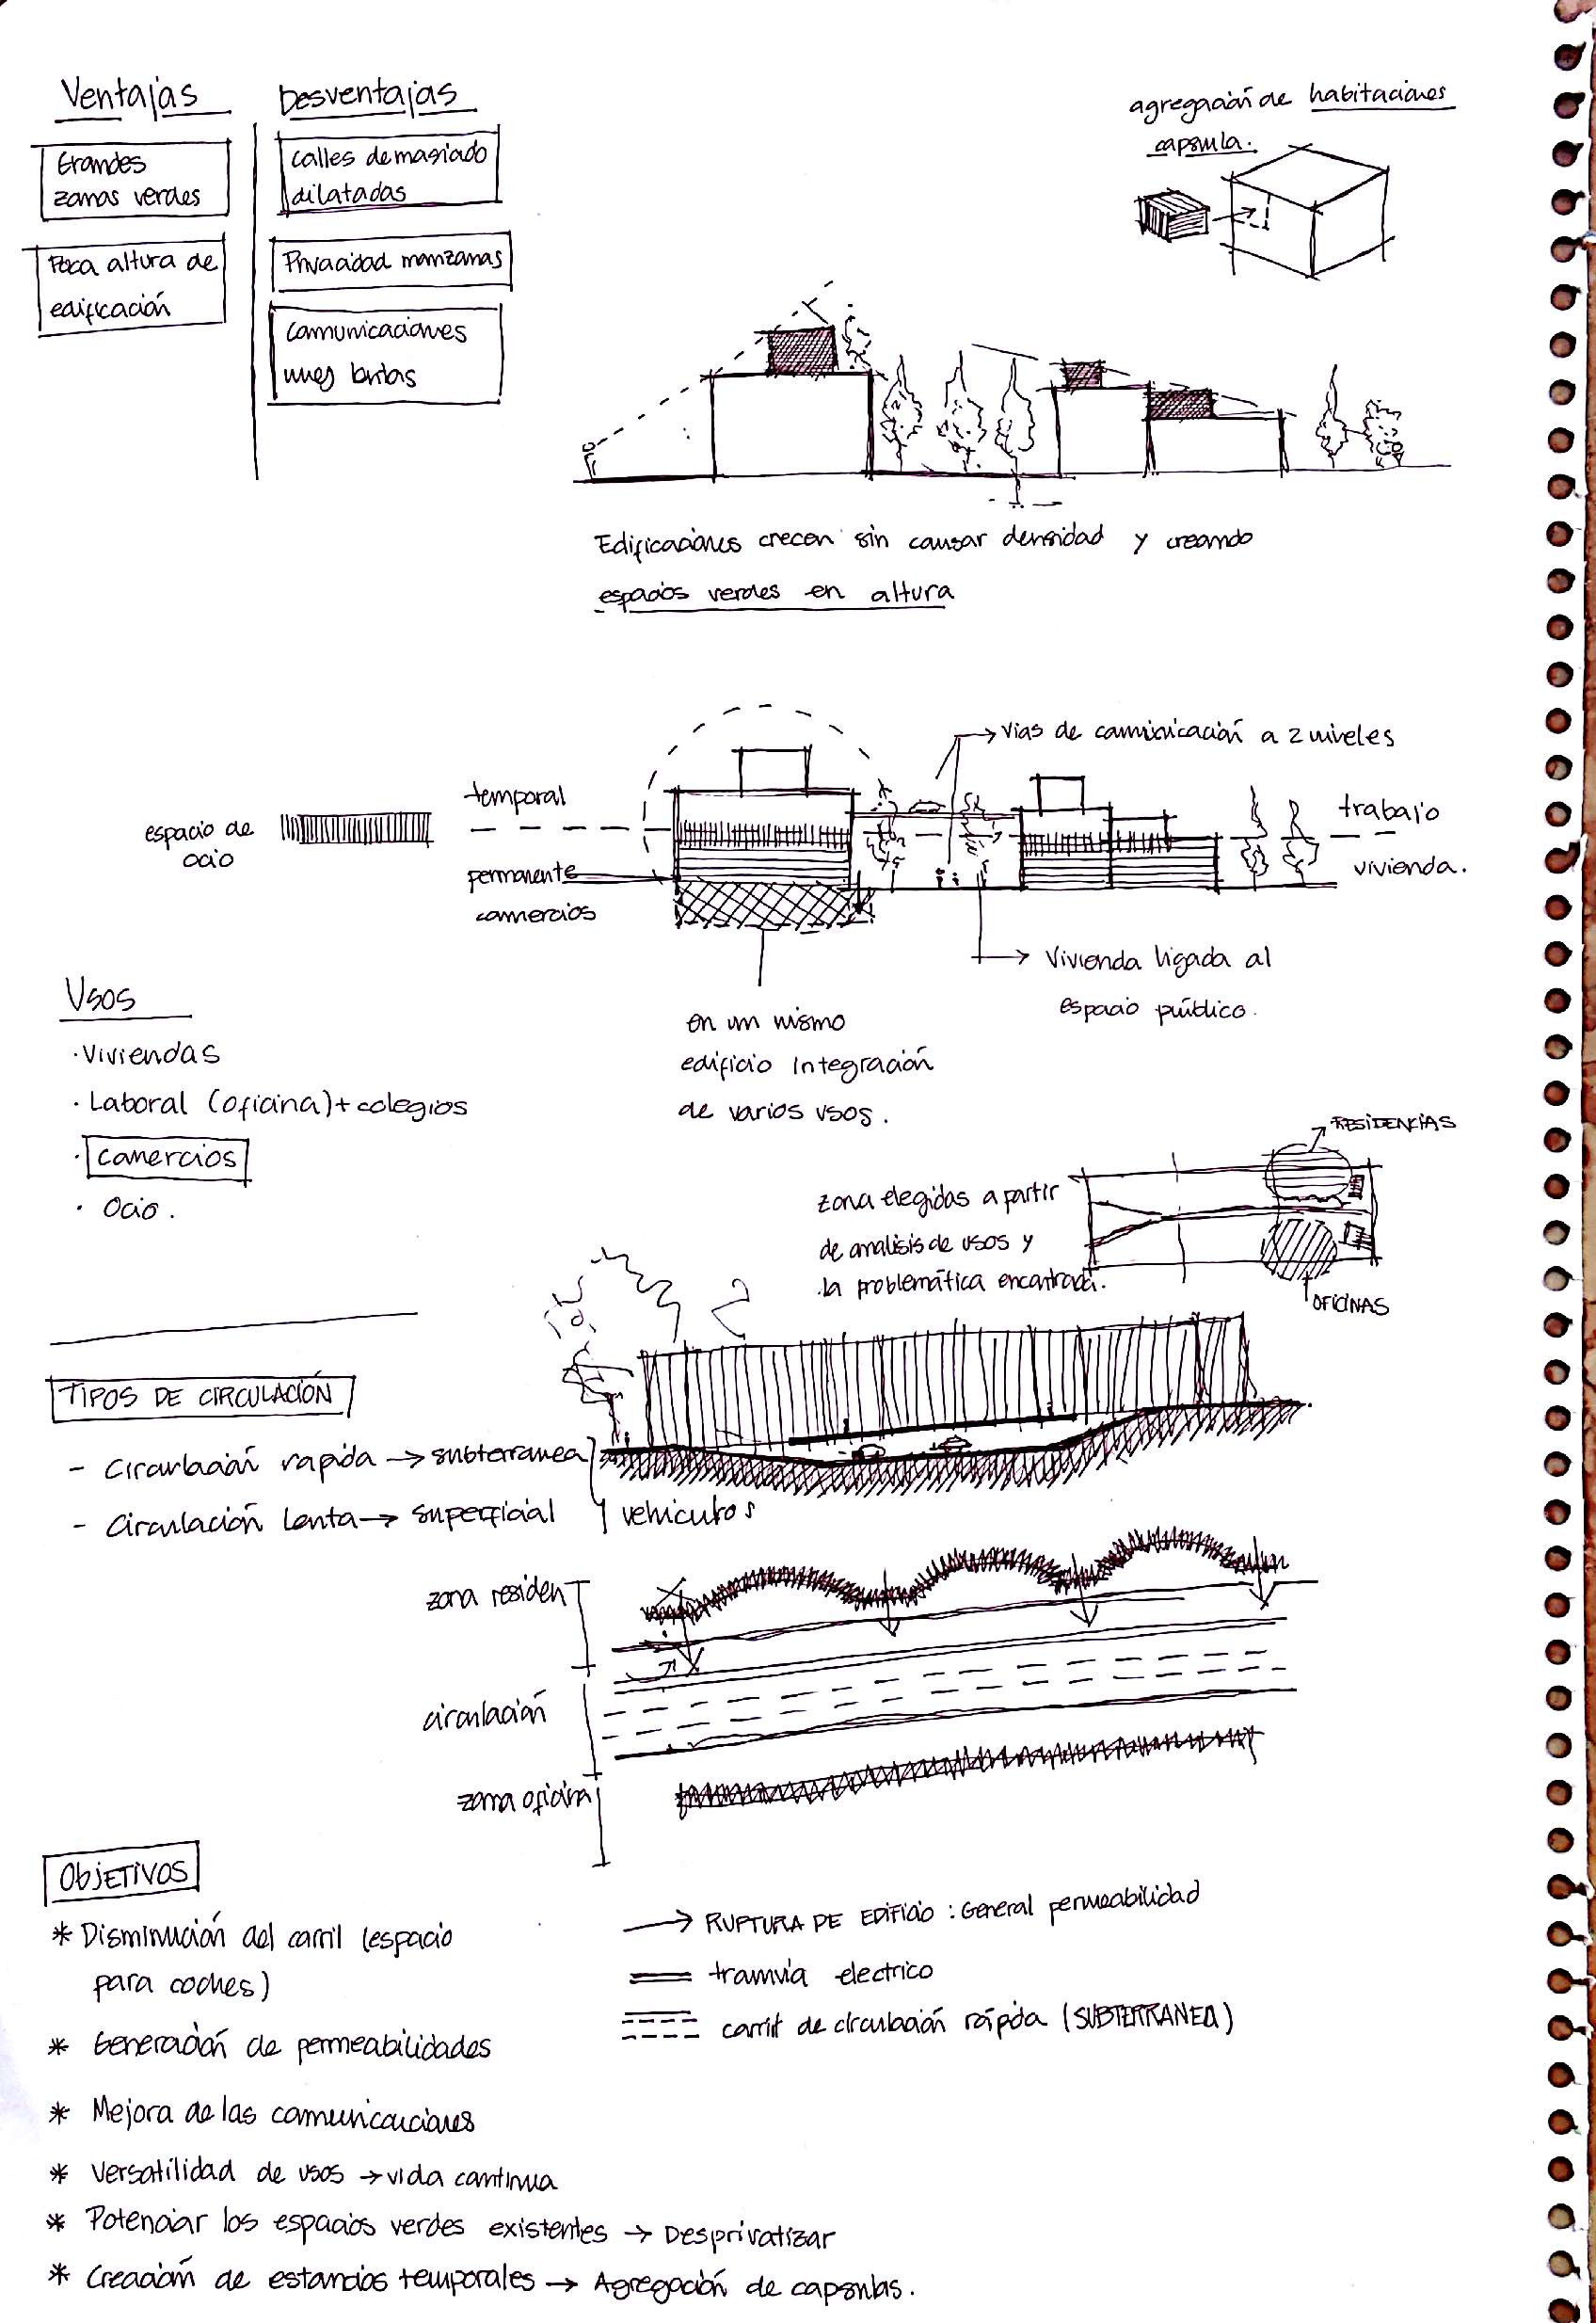 Ventajas
Grandes
zonas verdes
Poca altura de
edificación
Desventajas
calles demasiado
dilatadas
Privacidad manzanas
comunicaciones
muy lentas
agregación de habitaciones
capsula.
Edificaciones crecen sin causar densidad y creando
espacios verdes en altura
espacio de
ocio
temporal
permanente
comercios
vias de comunicación a 2 niveles
trabajo
vivienda.
Vivienda ligada al
espacio público.
en un mismo
edificio integración
de varios usos.
Usos
· Viviendas
· Laboral (oficina) + colegios
· comercios
· Ocio.
zona elegidas a partir
de analisis de usos y
la problemática encontrada.
RESIDENCIAS
OFICINAS
TIPOS DE CIRCULACIÓN
- circulación rapida → subterranea
- circulación lenta → superficial
vehiculos
zona residen
circulación
zona oficina
ObjETIVOS
* Disminución del carril (espacio
para coches)
* Generación de permeabilidades
* Mejora de las comunicaciones
* Versatilidad de usos → vida continua
* Potenciar los espacios verdes existentes → Desprivatizar
* Creación de estancias temporales → Agregación de capsulas.
→ RUPTURA DE EDIFICIO : General permeabilidad
tramvia electrico
carril de circulación rápida (SUBTERRANEA)